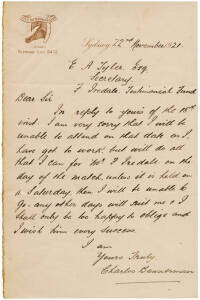 Sydney 22nd November 1921.
E A Tyler Esq
Secretary.
F Iredale Testimonial Fund
Dear Sir
In reply to yours of the 15th
inst. I am very sorry that I will be
unable to attend on that date as I
have got to work, but will do all
that I can for Mr F Iredale, on the
day of the match, unless it is held on
a Saturday, then I will be unable to
go. any other days will suit me & I
shall only be too happy to oblige and
I wish him every success
I am
Yours truly.
Charles Bannerman